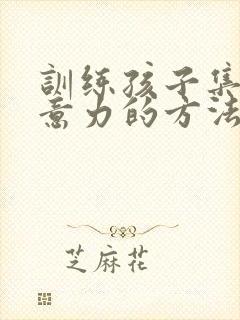 訓练孩子集
意力的方法
芝麻花